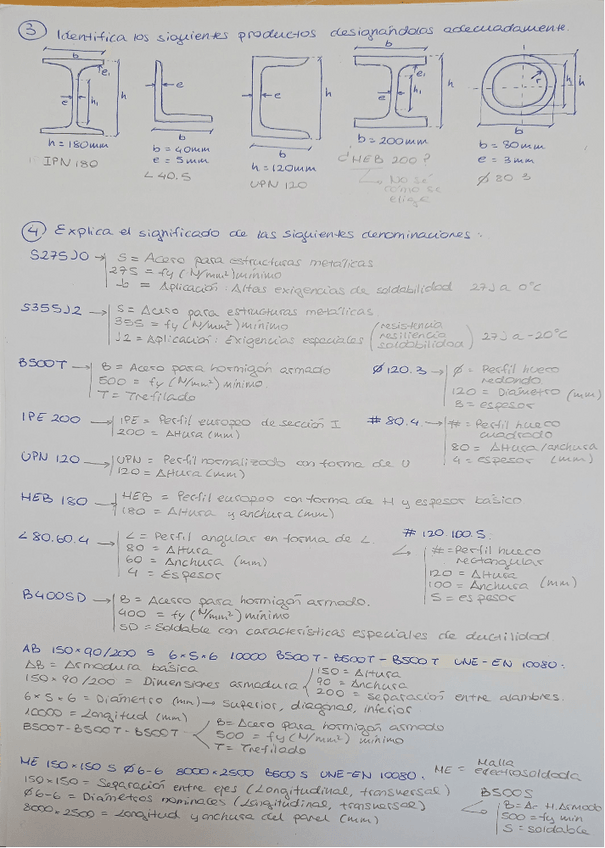 ③ Identifica los siguientes productos designándolos adecuadamente.
b b b
e₁ e₁
e h₁ h e h e h e h₁ h r h₁ h
b b b
h = 180mm b = 40mm h = 120mm b = 200mm b = 80mm
e = 5mm e = 3mm
IPN 180 ∠ 40.5 UPN 120 ¿HEB 200? Ø 80.3
No sé
como se
elige
④ Explica el significado de las siguientes denominaciones:
S275J0 → S = Acero para estructuras metálicas
275 = fy (N/mm²) mínimo
Jo = Aplicación: Altas exigencias de soldabilidad 27J a 0°C
S355J2 → S = Acero para estructuras metálicas
355 = fy (N/mm²) mínimo
J2 = Aplicación: Exigencias especiales (resistencia
resiliencia
soldabilidad) 27J a -20°C
B500T → B = Acero para hormigón armado
500 = fy (N/mm²) mínimo.
T = Trefilado
Ø 120.3 → Ø = Perfil hueco
redondo
120 = Diámetro (mm)
3 = espesor
IPE 200 → IPE = Perfil europeo de sección I
200 = Altura (mm)
# 80.4 → # = Perfil hueco
cuadrado
80 = Altura/anchura
4 = espesor (mm)
UPN 120 → UPN = Perfil normalizado con forma de U
120 = Altura (mm)
HEB 180 → HEB = Perfil europeo con forma de H y espesor básico
180 = Altura y anchura (mm)
∠ 80.60.4 → ∠ = Perfil angular en forma de L.
80 = Altura
60 = Anchura (mm)
4 = Espesor
# 120.100.5
# = Perfil hueco
rectangular
120 = Altura
100 = Anchura (mm)
5 = espesor
B400SD → B = Acero para hormigón armado.
400 = fy (N/mm²) mínimo
SD = Soldable con características especiales de ductilidad
AB 150×90/200 S 6×5×6 10000 B500T - B500T - B500T UNE-EN 10080:
AB = Armadura básica
150×90/200 = Dimensiones armadura
150 = Altura
90 = Anchura
200 = separación entre alambres.
6×5×6 = Diámetro (mm) → Superior, diagonal, inferior
10000 = Longitud (mm)
B500T-B500T-B500T
B = Acero para hormigón armado
500 = fy (N/mm²) mínimo
T = Trefilado
ME 150×150 S Ø6-6 8000×2500 B500S UNE-EN 10080. ME = Malla
electrosoldada
150×150 = Separación entre ejes (Longitudinal, transversal)
Ø6-6 = Diámetros nominales (Longitudinal, transversal)
8000×2500 = Longitud y anchura del panel (mm)
B500S
B = Ac. H. Armado
500 = fy min
S = soldable